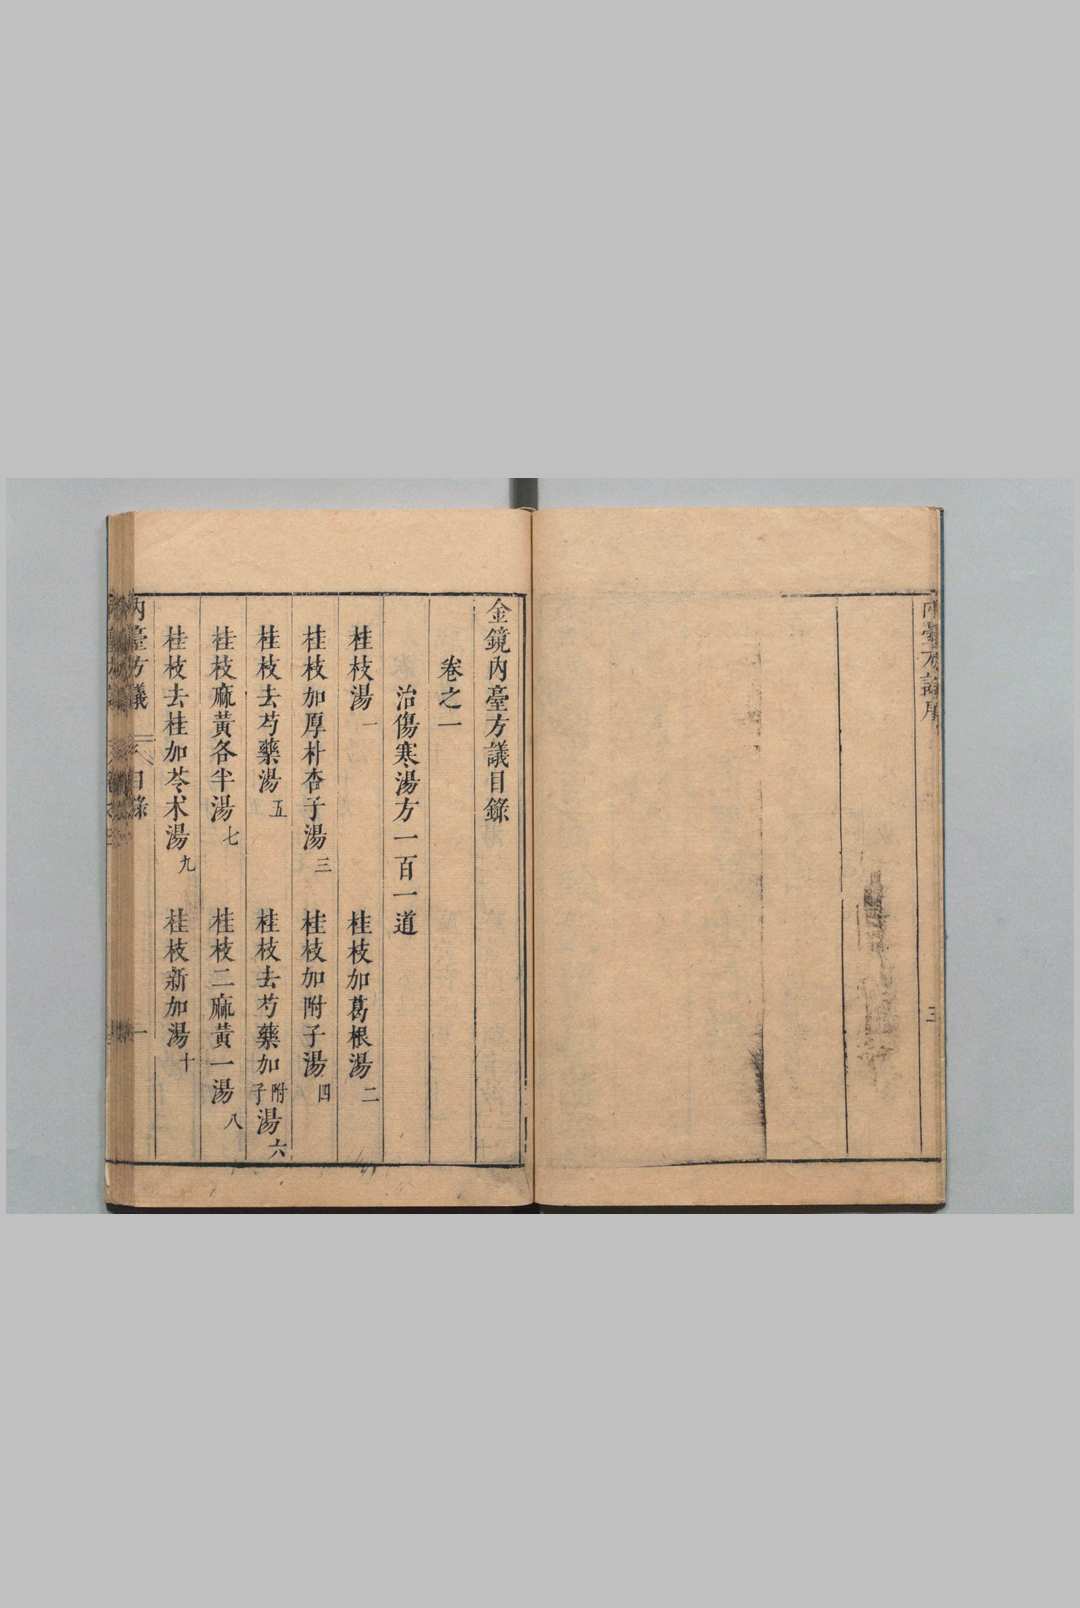 金鏡內臺方議目錄
卷之一
治傷寒湯方一百一道
桂枝湯一
桂枝加葛根湯二
桂枝加厚朴杏子湯三
桂枝加附子湯四
桂枝去芍藥湯五
桂枝去芍藥加附子湯六
桂枝麻黃各半湯七
桂枝二麻黃一湯八
桂枝去桂加苓朮湯九
桂枝新加湯十
內臺方議 目錄 一